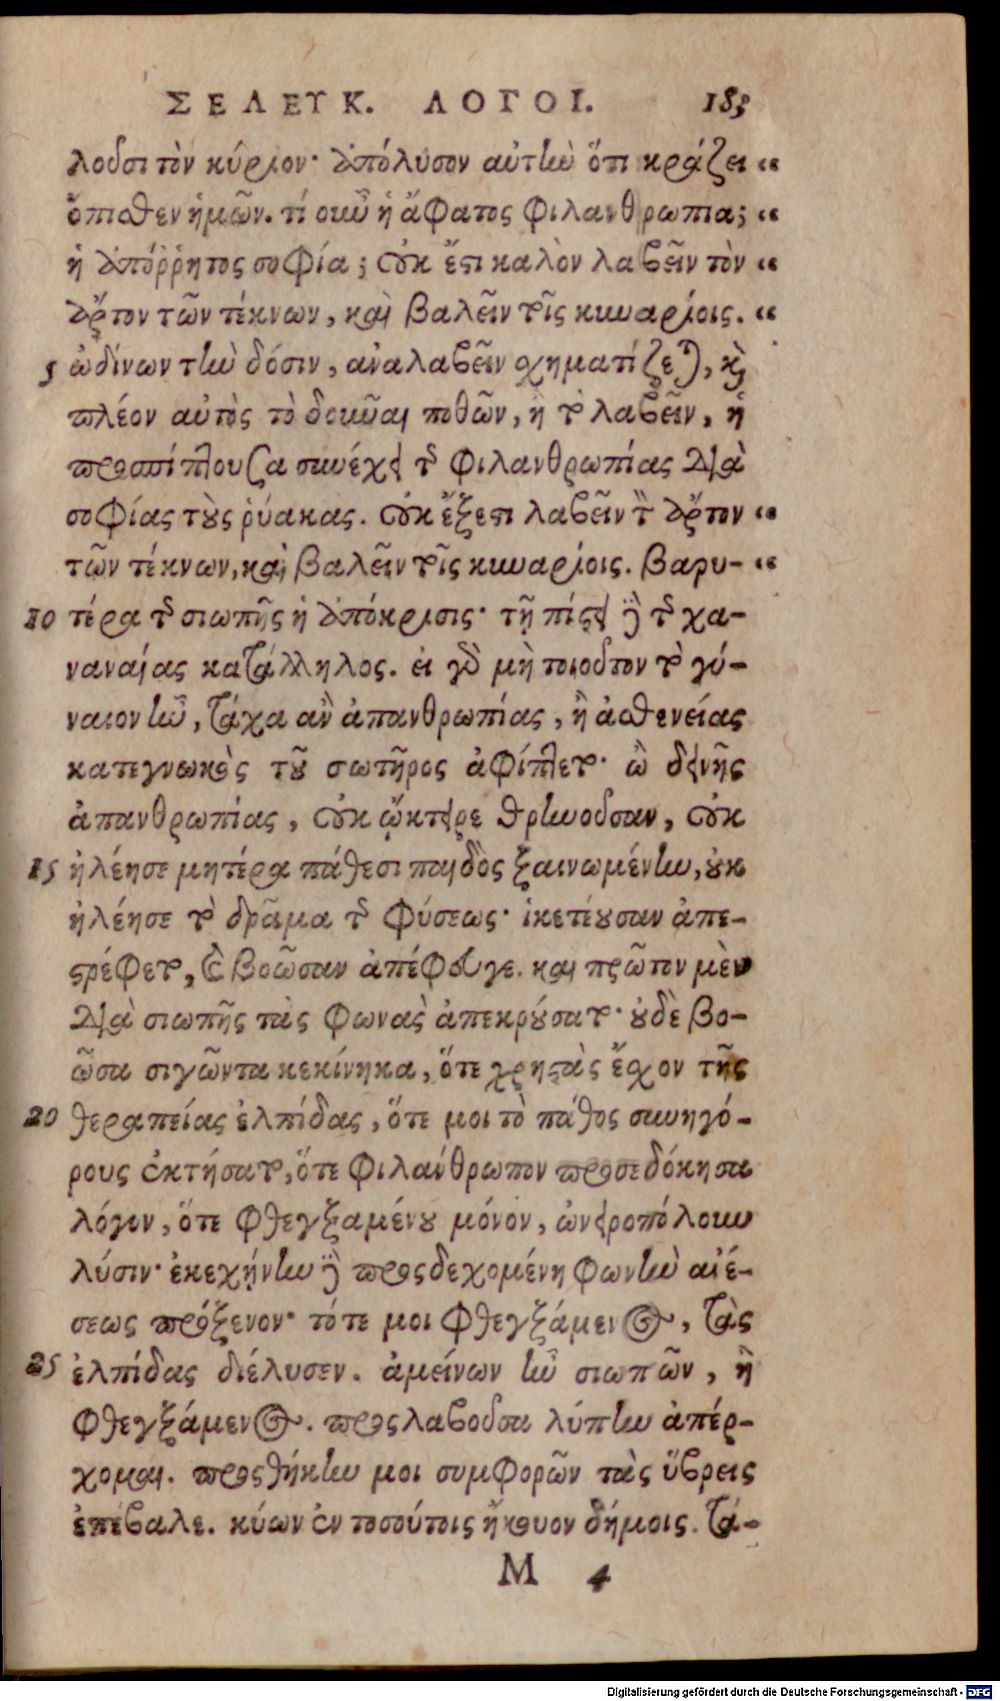 ΣΕΛΕΥΚ. ΛΟΓΟΙ. 183
λοῦσι τὸν κύριον· ἀπόλυσον αὐτὴν ὅτι κράζει “
ὄπισθεν ἡμῶν. τί οὖν ἡ ἄφατος φιλανθρωπία; “
ἡ ἀπόῤῥητος σοφία; οὐκ ἔστι καλὸν λαβεῖν τὸν “
ἄρτον τῶν τέκνων, καὶ βαλεῖν τοῖς κυναρίοις. “
5 ὠδίνων τὴν δόσιν, ἀναλαβεῖν σχηματίζεται, καὶ
πλέον αὐτὸς τὸ δοῦναι ποθῶν, ἢ τὸ λαβεῖν, ἡ
προσπίπτουσα συνέχει τῆς φιλανθρωπίας διὰ
σοφίας τοὺς ῥύακας. οὐκ ἔξεστι λαβεῖν τὸν ἄρτον “
τῶν τέκνων, καὶ βαλεῖν τοῖς κυναρίοις. βαρυ- “
10 τέρα τῆς σιωπῆς ἡ ἀπόκρισις· τῇ πίστει δὲ τῆς χα-
ναναίας κατάλληλος. εἰ γὰρ μὴ τοιοῦτον τὸ γύ-
ναιον ἦν, τάχα ἂν ἀπανθρωπίας, ἢ ἀσθενείας
κατεγνωκὸς τοῦ σωτῆρος ἀφίπτετο· ὢ δεινῆς
ἀπανθρωπίας, οὐκ ᾤκτειρε θρηνοῦσαν, οὐκ
15 ἠλέησε μητέρα πάθεσι παιδὸς ξαινομένην, οὐκ
ἠλέησε τὸ δρᾶμα τῆς φύσεως· ἱκετεύουσαν ἀπε-
στρέφετο, καὶ βοῶσαν ἀπέφευγε. καὶ πρῶτον μὲν
διὰ σιωπῆς τὰς φωνὰς ἀπεκρούσατο· οὐδὲ βο-
ῶσα σιγῶντα κεκίνηκα, ὅτε χρηστὰς ἔσχον τῆς
20 θεραπείας ἐλπίδας, ὅτε μοι τὸ πάθος συνηγό-
ρους ἐκτήσατο, ὅτε φιλάνθρωπον προσεδόκησα
λόγον, ὅτε φθεγξαμένου μόνον, ὠνειροπόλουν
λύσιν· ἐκεχήνην δὲ προσδεχομένη φωνὴν αἰέ-
σεως πρόξενον· τότε μοι φθεγξάμενος, τὰς
25 ἐλπίδας διέλυσεν. ἀμείνων ἦν σιωπῶν, ἢ
φθεγξάμενος. προσλαβοῦσα λύπην ἀπέρ-
χομαι. προσθήκην μοι συμφορῶν τὰς ὕβρεις
ἐπέβαλε. κύων ἐν τοσούτοις ἤκουον δήμοις. τά-
M 4
Digitalisierung gefördert durch die Deutsche Forschungsgemeinschaft - DFG